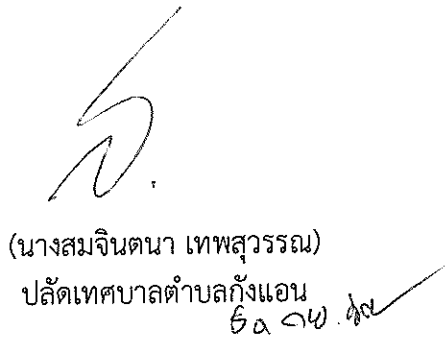 (นางสมจินตนา เทพสุวรรณ)
ปลัดเทศบาลตำบลกังแอน